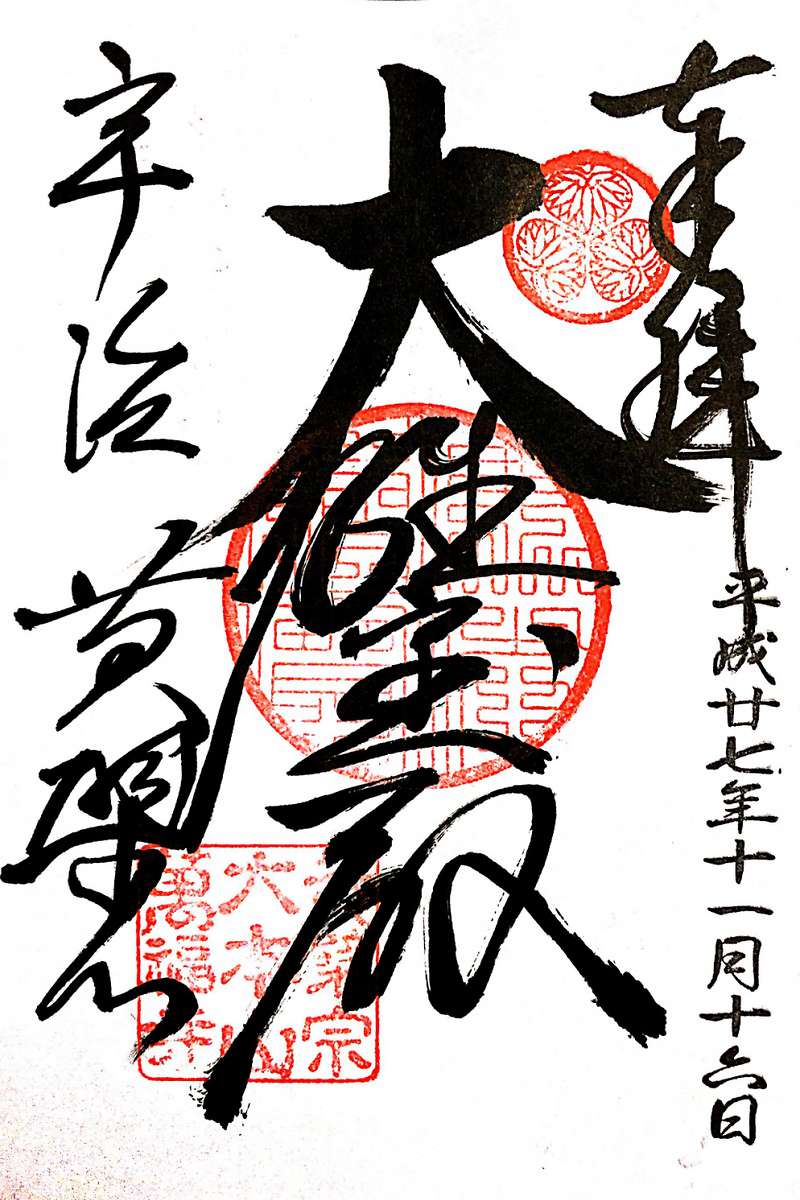 奉拝
平成廿七年十一月十六日
大雄宝殿
宇治
黄檗山
黄檗宗
大本山
萬福寺